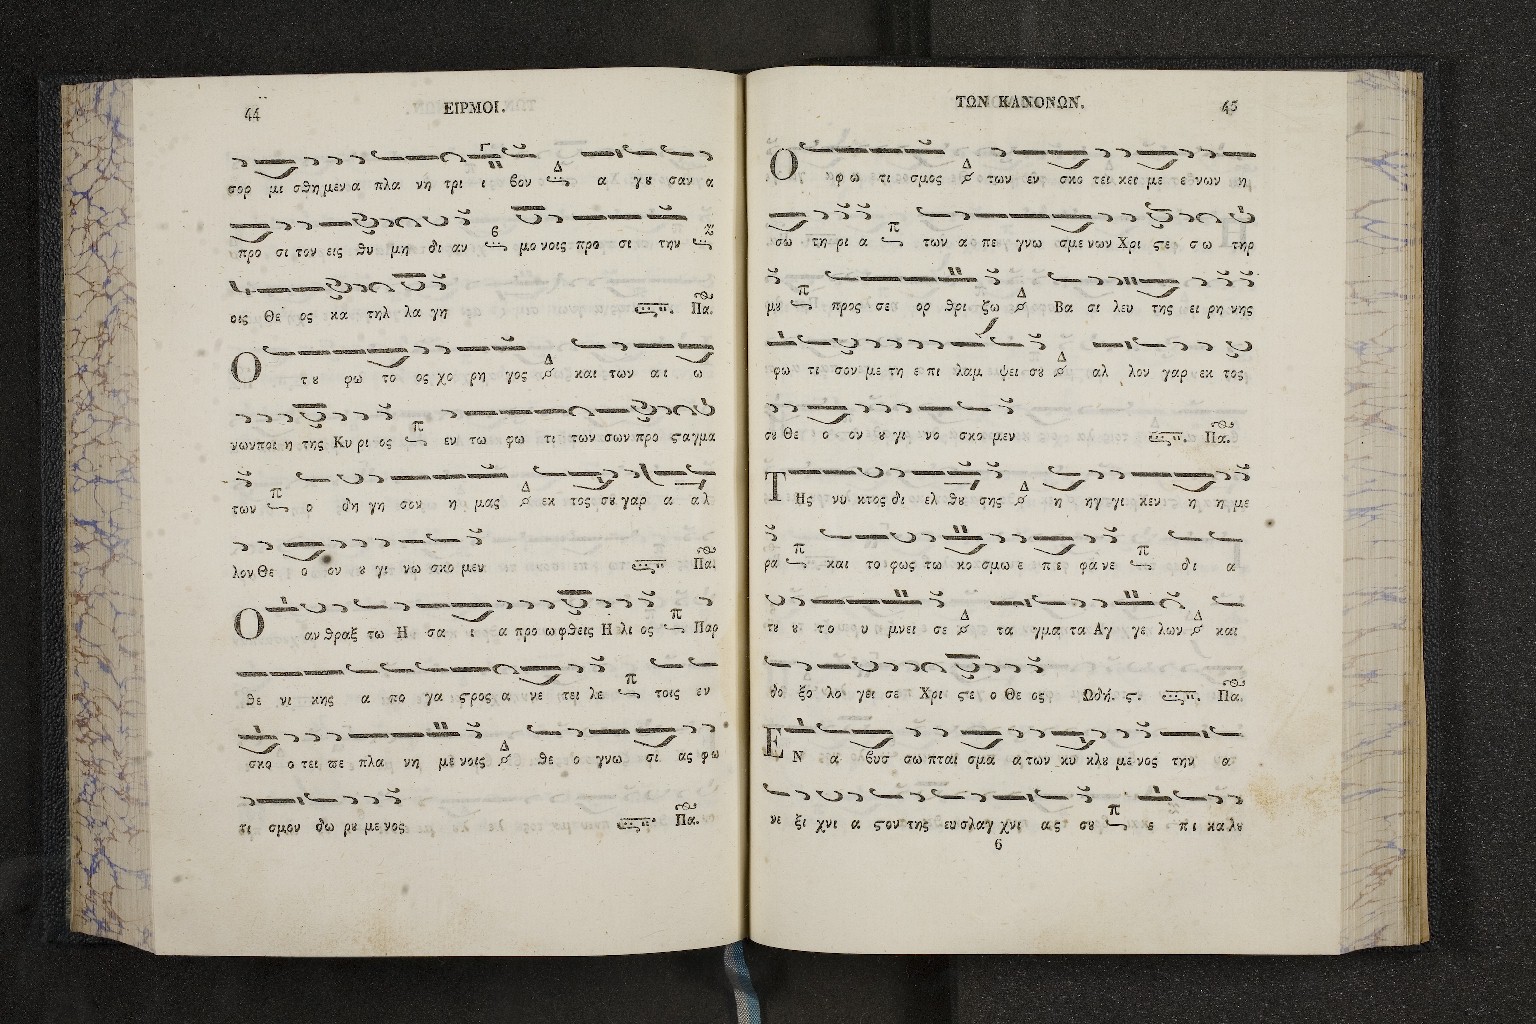 44 ΕΙΡΜΟΙ.
σορ μι σθη μεν α πλα νη τρι ι βον α γȣ σαν α
προ σι τον εις θυ μη δι αν μο νοις προ σι την
οις Θε ος κα τηλ λα γη Πα.
Ο τȣ φω το ος χο ρη γος και των αι ω
νων ποι η της Κυ ρι ος εν τω φω τι των σων προ ϛαγμα
των ο δη γη σον η μας εκ τος σȣ γαρ α αλ
λον Θε ο ον ȣ γι νω σκο μεν Πα.
Ο αν θραξ τω Η σα ι α προ ω φθεις Η λι ος Παρ
θε νι κης α πο γα ϛρος α νε τει λε τοις εν
σκο ο τει πε πλα νη με νοις θε ο γνω σι ας φω
τι σμον δω ρȣ με νος Πα.
ΤΩΝ ΚΑΝΟΝΩΝ. 45
Ο φω τι σμος των εν σκο τει κει με ε νων η
σω τη ρι α των α πε γνω σμε νων Χρι ϛε σω τηρ
μȣ προς σε ορ θρι ζω Βα σι λευ της ει ρη νης
φω τι σον με τη ε πι λαμ ψει σȣ αλ λον γαρ εκ τος
σȣ Θε ο ον ȣ γι νο σκο μεν Πα.
Της νυ κτος δι ελ θȣ σης η ηγ γι κεν η η με
ρα και το φως τω κο σμω ε πε φα νε δι α
τȣ το υ μνει σε τα γμα τα Αγ γε λων και
δο ξο λο γει σε Χρι ϛε ο Θε ος Ωδή. ϛ. Πα.
ΕΝ α βυσ σω πται σμα α των κυ κλȣ με νος την α
νε ξι χνι α ϛον της ευ σλαγ χνι ας σȣ ε πι κα λȣ
6